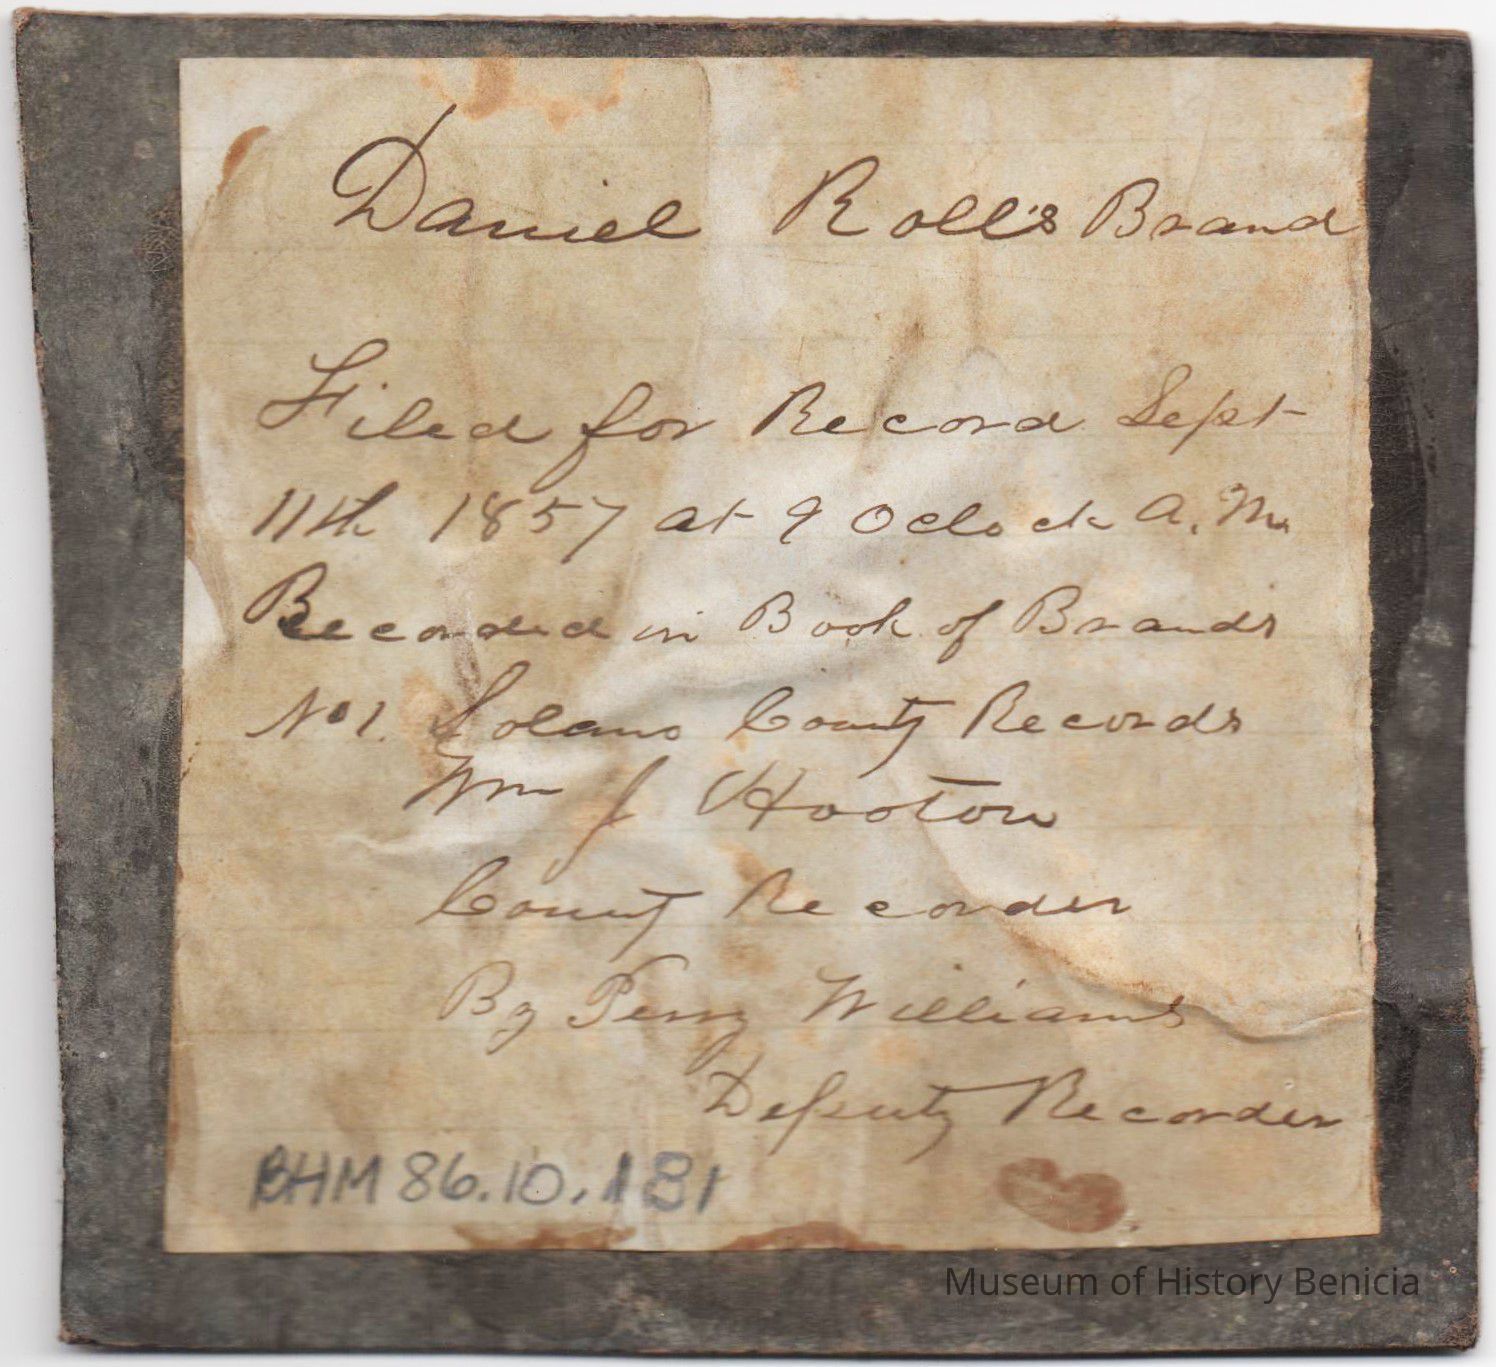 Daniel Roll's Brand
Filed for Record Sept
11th 1857 at 9 Oclock A.M.
Recorded in Book of Brands
No 1. Solano County Records
Wm J Hooton
County Recorder
By Perry Williams
Deputy Recorder
BHM 86.10.181
Museum of History Benicia